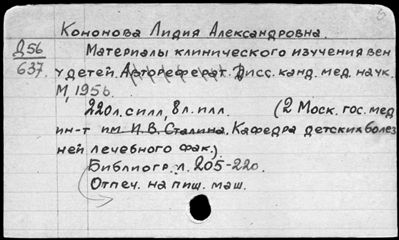 Кононова Лидия Александровна.
Д56
637.
Материалы клинического изучения вен
у детей. Автореферат. Дисс. канд. мед. наук.
М, 1956.
220 л. с илл, 8 л. илл. (2 Моск. гос. мед
ин-т им И. В. Сталина. Кафедра детских болез
ней лечебного фак.).
Библиогр. л. 205-220.
Отпеч. на пиш. маш.